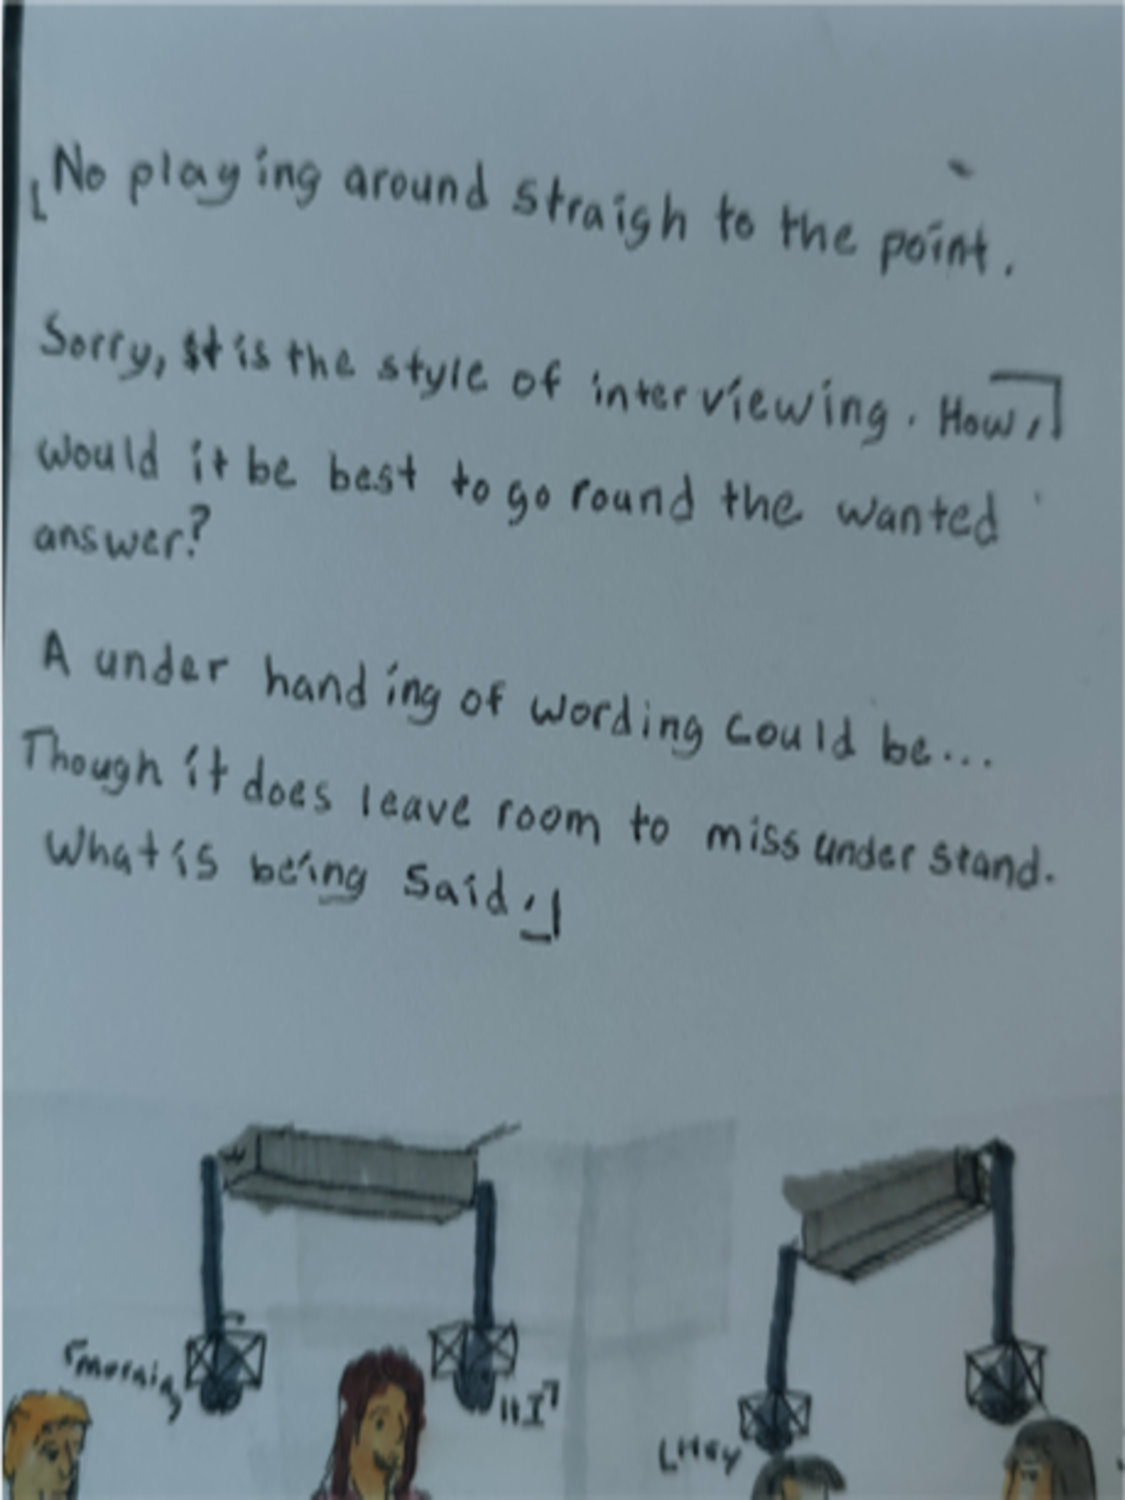 「No playing around straigh to the point.
Sorry, it is the style of interviewing. How,」
would it be best to go round the wanted
answer?
A under handing of wording could be...
Though it does leave room to miss understand.
What is being said.」
「morning
HI」
「Hey